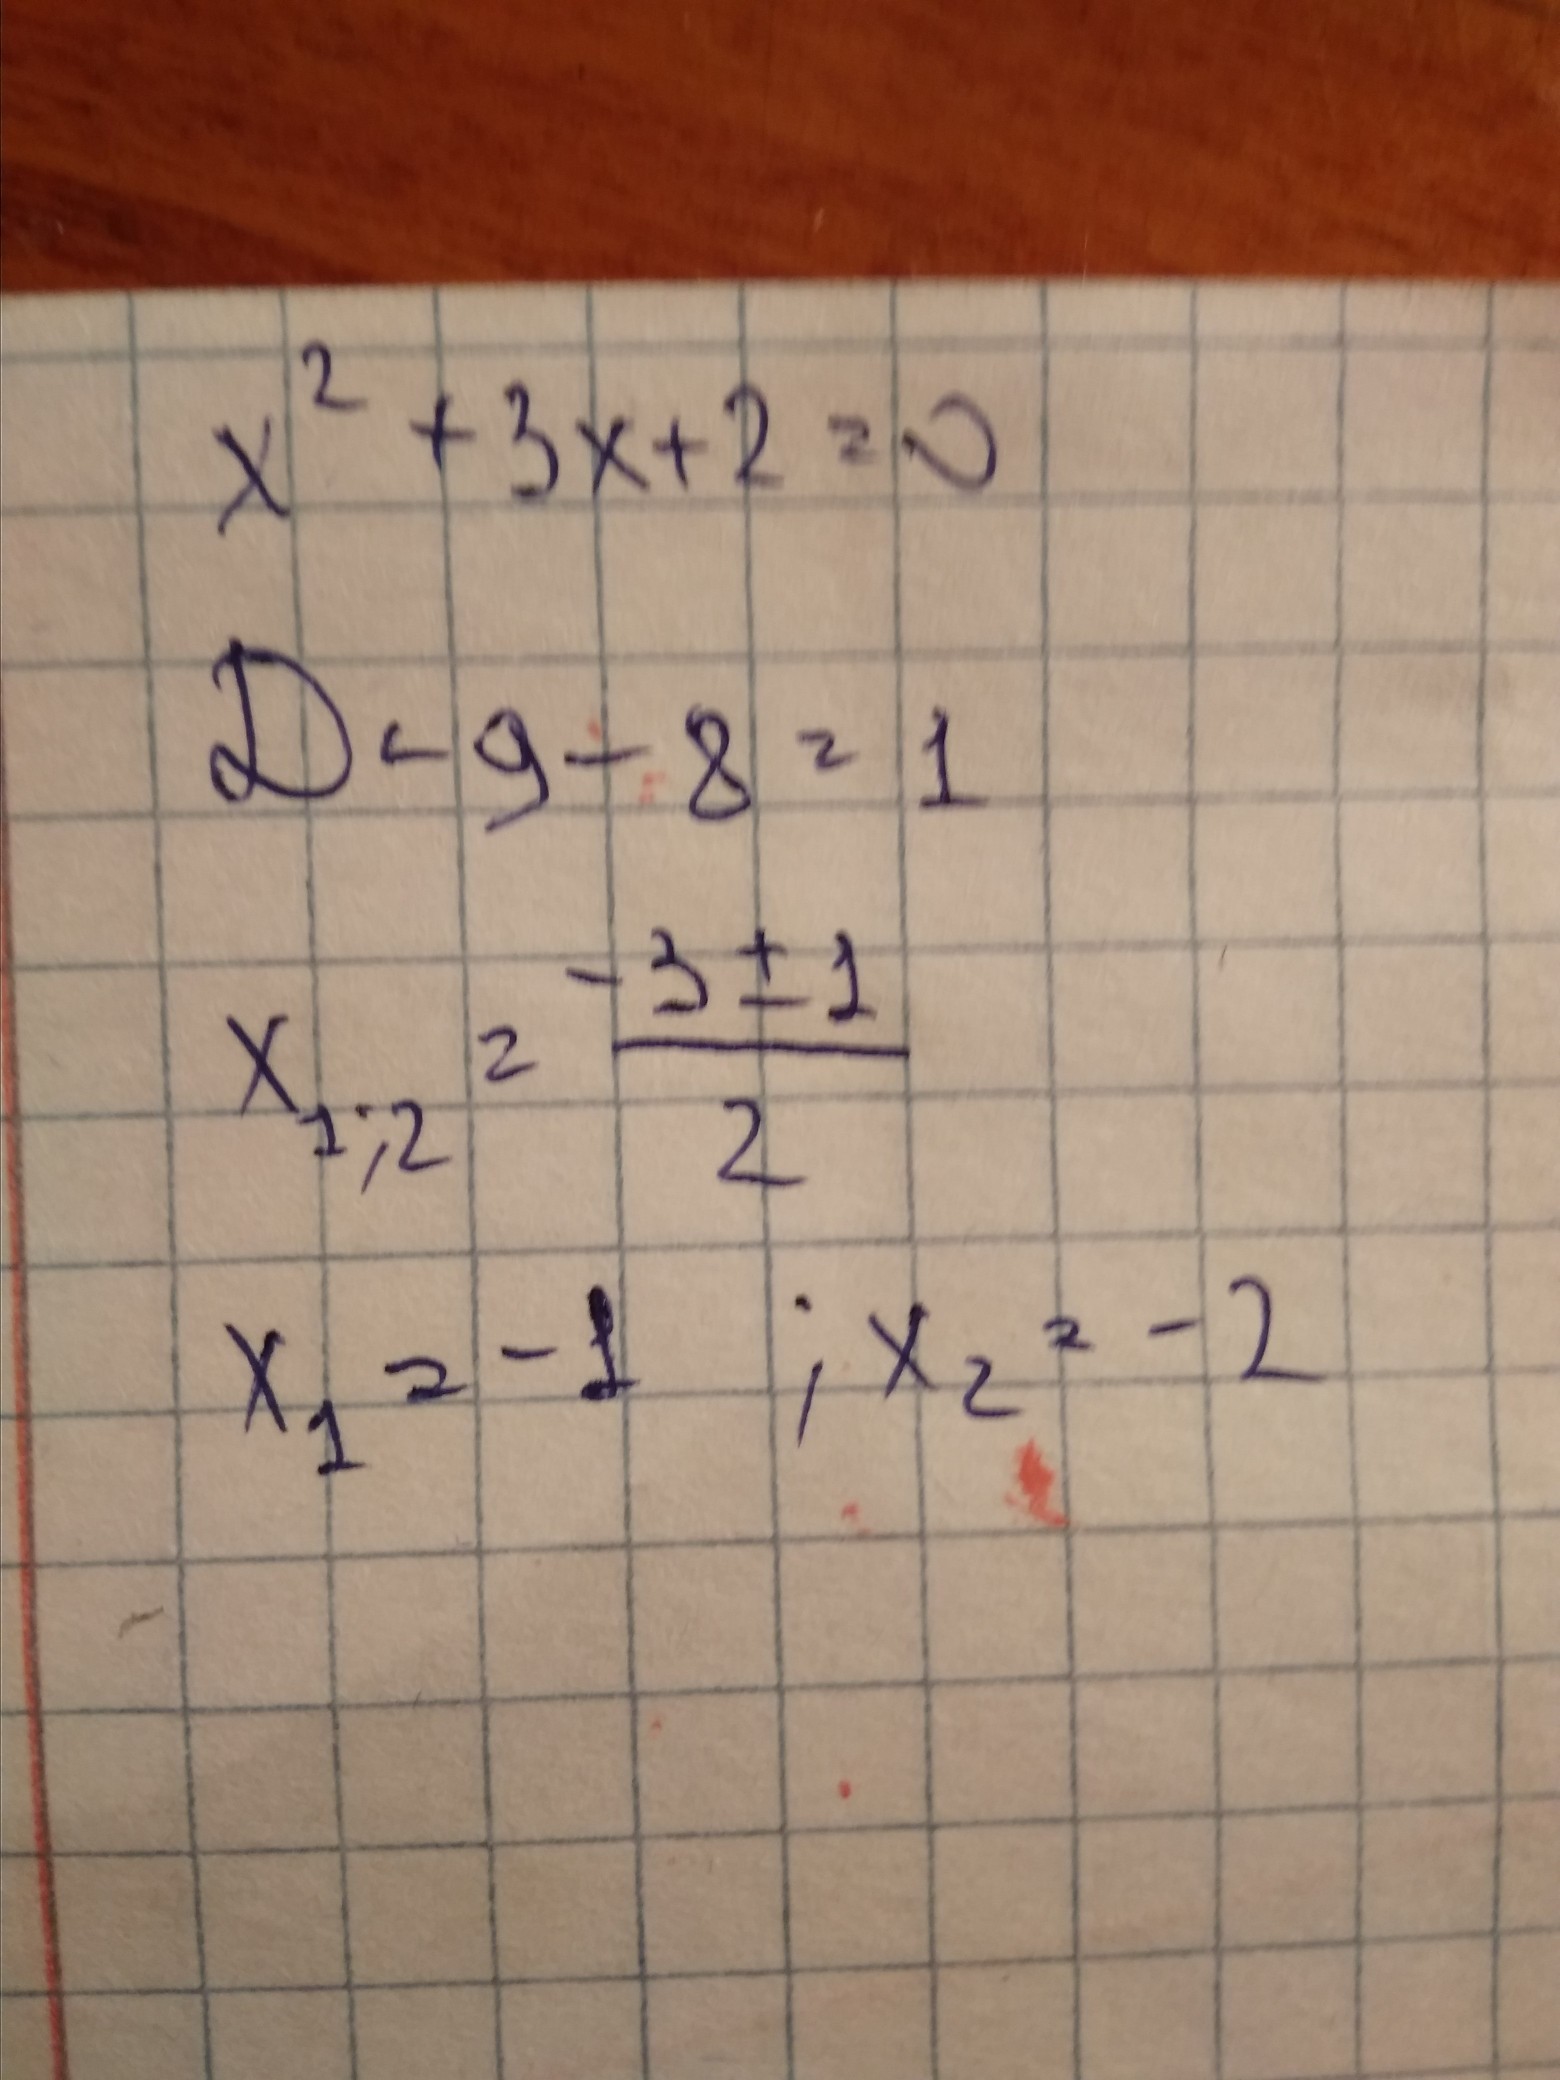 x² + 3x + 2 = 0
D = 9 - 8 = 1
x₁;₂ = (-3 ± 1) / 2
x₁ = -1 ; x₂ = -2